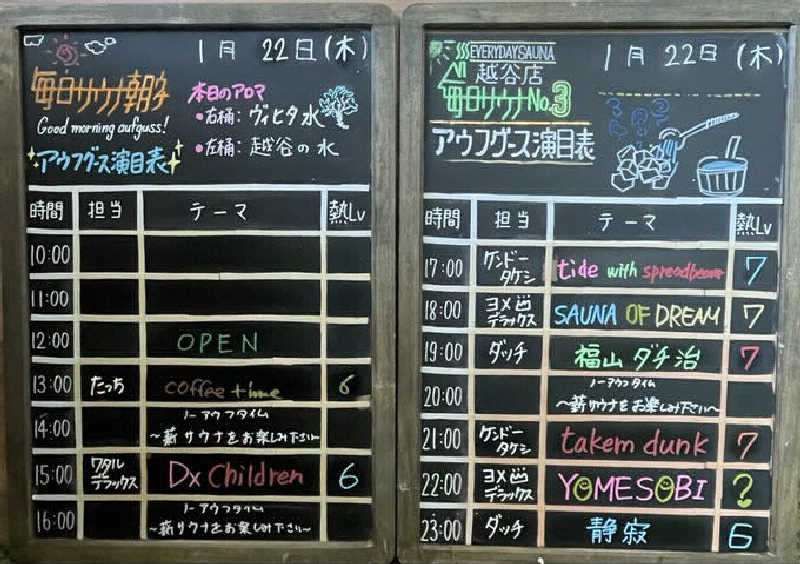 1月 22日(木)
毎日サウナ朝
Good morning aufguss!
アウフグース演目表
本日のアロマ
•右桶: ヴィヒタ水
•左桶: 越谷の水
時間 担当 テーマ 熱Lv
10:00
11:00
12:00 OPEN
13:00 たっち coffee time 6
14:00 ノーアウフタイム
〜薪サウナをお楽しみ下さい〜
15:00 ワタルデラックス Dx Children 6
16:00 ノーアウフタイム
〜薪サウナをお楽しみ下さい〜
EVERYDAY SAUNA
越谷店
毎日サウナNo.3
1月 22日 (木)
アウフグース演目表
時間 担当 テーマ 熱Lv
17:00 ケンドータケシ tide with 7
18:00 ヨメ デラックス SAUNA OF DREAM 7
19:00 ダッチ 福山ダチ治 7
20:00 ノーアウフタイム
〜薪サウナをお楽しみ下さい〜
21:00 ケンドータケシ takem dunk 7
22:00 ヨメ デラックス YOMESOBI ?
23:00 ダッチ 静寂 6